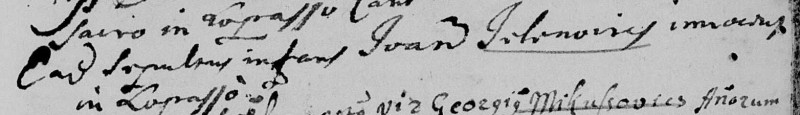 Sacro in Kopasso
Ead Sepultus infans Joan Jelenovics innocens
in Kopasso
vir Georgig Mikussovics Anorum